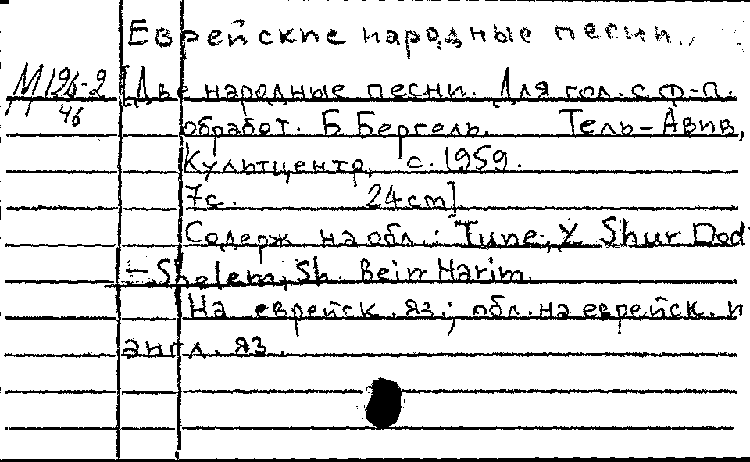 Еврейские народные песни.
М 126-2 [Две народные песни. Для гол. с ф-п.
46 обработ. Б Бергель. Тель-Авив,
Культцентр, с. 1959.
7с. 24 cm]
Содерж на обл.: Tune, Y Shur Dod
- Shelem, Sh. Bein Harim.
На еврейск. яз.; обл. на еврейск. и
англ. яз.